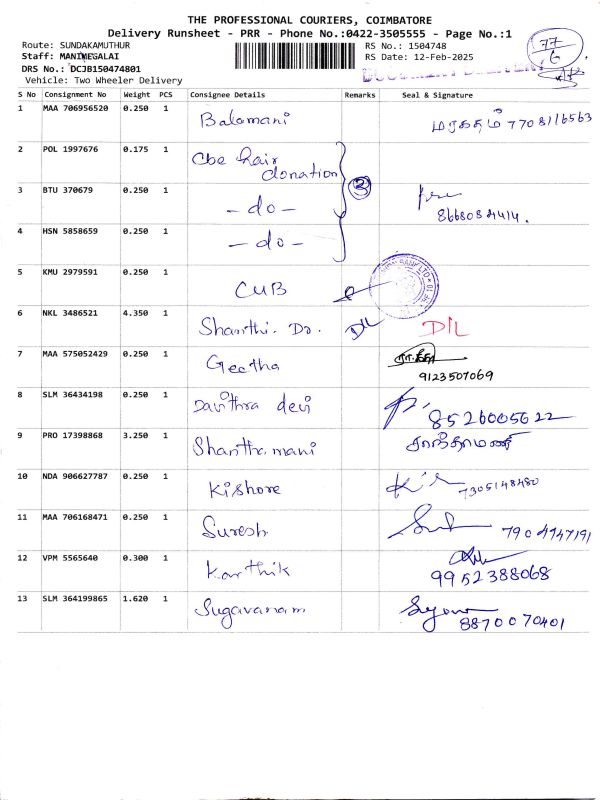 THE PROFESSIONAL COURIERS, COIMBATORE
Delivery Runsheet - PRR - Phone No.:0422-3505555 - Page No.:1
Route: SUNDAKAMUTHUR RS No.: 1504748
Staff: MANIMEGALAI RS Date: 12-Feb-2025
DRS No.: DCJB150474801
Vehicle: Two Wheeler Delivery
77
6
S No Consignment No Weight PCS Consignee Details Remarks Seal & Signature
1 MAA 706956520 0.250 1 Balamani மரகதம் 7708116563
2 POL 1997676 0.175 1 Cbe hair
donation
3 BTU 370679 0.250 1 - do - 3
8668084414.
4 HSN 5858659 0.250 1 - do -
5 KMU 2979591 0.250 1 CUB
6 NKL 3486521 4.350 1 Shanthi. Do. DIL DIL
7 MAA 575052429 0.250 1 Geetha
9123507069
8 SLM 36434198 0.250 1 Davithra devi 8526005622
9 PRO 17398868 3.250 1 Shanthamani சாந்தாமணி
10 NDA 906627787 0.250 1 Kishore 7305148480
11 MAA 706168471 0.250 1 Suresh 7904947191
12 VPM 5565640 0.300 1 Karthik
9952388068
13 SLM 364199865 1.620 1 Sugavanam
8870070401